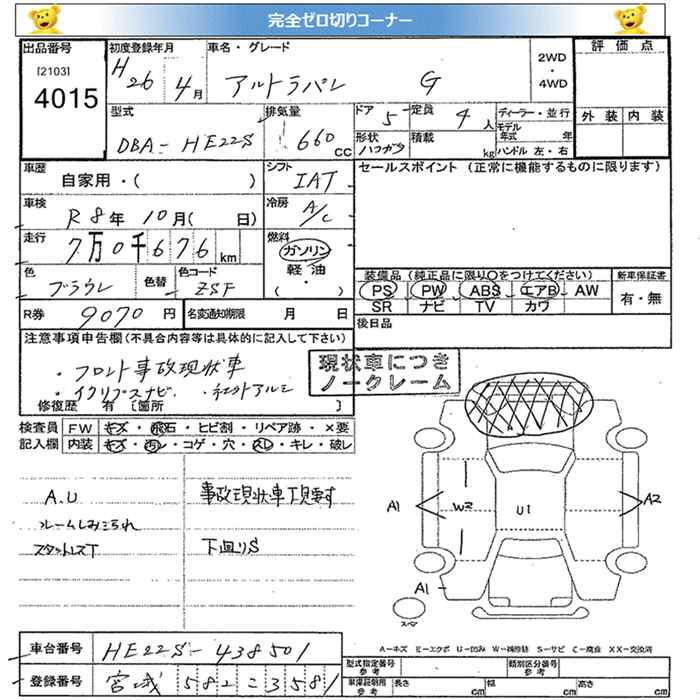 完全ゼロ切りコーナー
出品番号 初度登録年月 車名・グレード 2WD・4WD 評価点
[2103] 4015 H26 4月 アルトラパン G
型式 排気量 ドア 定員 ディーラー・並行 外装 内装
DBA-HE22S 660 CC 5 4人 モデル年式 年
形状 ハコガタ 積載 kg ハンドル 左・右
車歴 自家用・( ) シフト IAT セールスポイント (正常に機能するものに限ります)
車検 R8年 10月( 日) 冷房 A/C
走行 7万0千676 km 燃料 ガソリン・軽油・( )
色 ブラウン 色替 色コード ZSF 装備品 (純正品に限り○をつけてください) 新車保証書
PS PW ABS エアB AW 有・無
SR ナビ TV カワ
R券 9070円 名変通知期限 月 日 後日品
注意事項申告欄(不具合内容等は具体的に記入して下さい)
・フロント事故現状車
・イクリプスナビ ・社外アルミ
修復歴 有 [箇所 ]
現状車につき
ノークレーム
検査員記入欄 FW キズ・飛石・ヒビ割・リペア跡・×要
内装 キズ・汚レ・コゲ・穴・スレ・キレ・破レ
A.U 事故現状車下見要す
スタットレスT 下廻りS
A1 W2 U1 A2
A1
スペア
A-キズ E-エクボ U-凹み W-補修跡 S-サビ C-腐食 XX-交換済
車台番号 HE22S-438501
型式指定番号 参考 類別区分番号 参考
登録番号 宮城 582 こ 3581
車庫証明用 参考 長さ cm 幅 cm 高さ cm